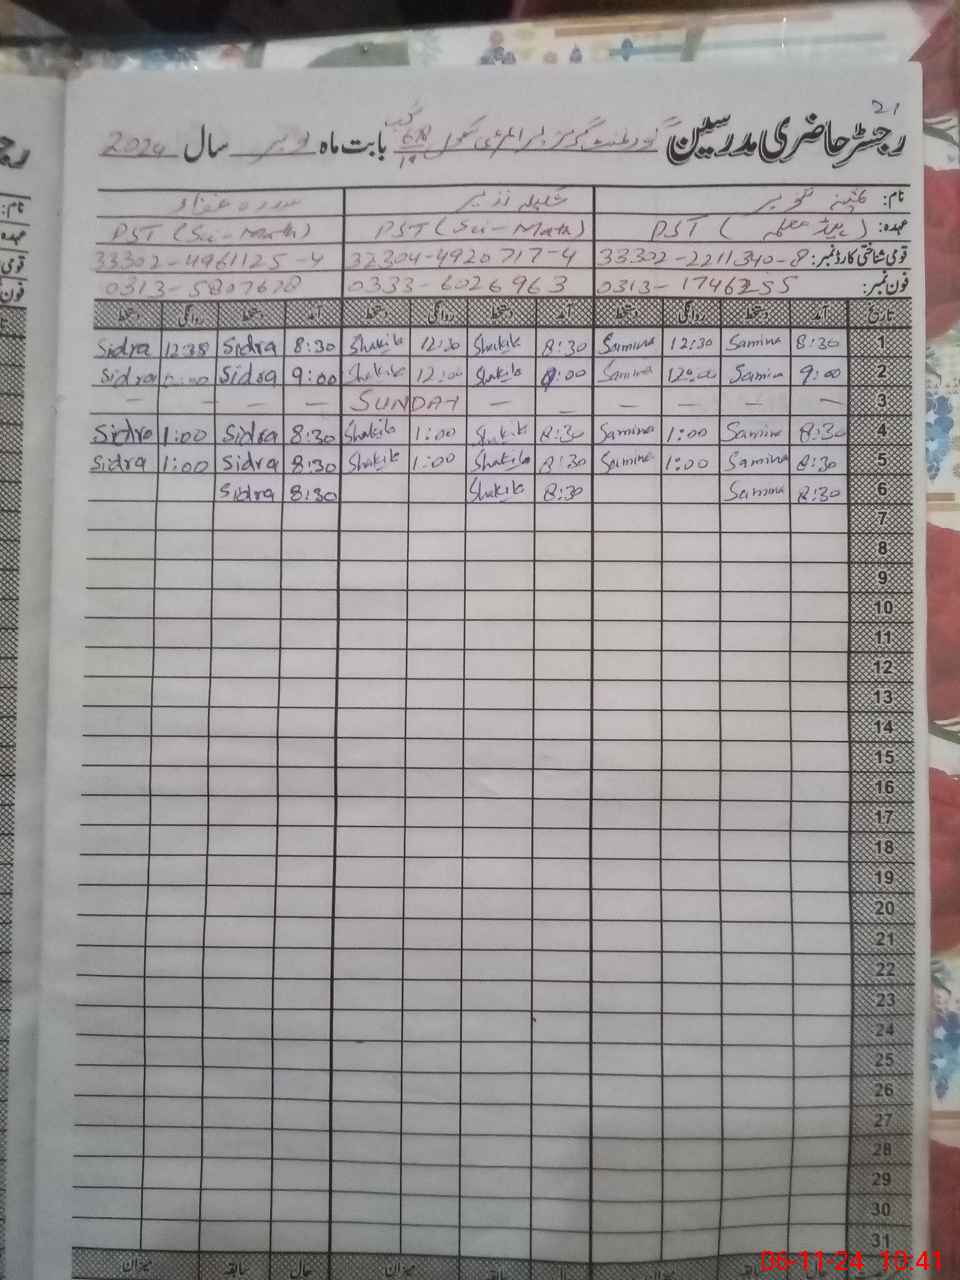 21
رجسٹر حاضری مدرسین گورنمنٹ گرلز پرائمری سکول 678/19 گب بابت ماہ نومبر سال 2024
نام: ثمینہ شکیلہ نذیر سدرہ
عہدہ: PST (ہیڈ معلمہ) PST (Sci-Math) PST (Sci-Math)
قومی شناختی کارڈ نمبر: 33302-2211340-8 32304-4920717-4 33302-4961125-4
فون نمبر: 0313-1746255 0333-6026963 0313-5807678
تاریخ آمد دستخط روانگی دستخط آمد دستخط روانگی دستخط آمد دستخط روانگی دستخط
1 8:30 Samina 12:30 Samina 8:30 Shakila 12:30 Shakila 8:30 Sidra 12:38 Sidra
2 9:00 Samina 12:00 Samina 9:00 Shakila 12:00 Shakila 9:00 Sidra Sidra
3 — — — — — SUNDAY — — — —
4 8:30 Samina 1:00 Samina 8:30 Shakila 1:00 Shakila 8:30 Sidra 1:00 Sidra
5 8:30 Samina 1:00 Samina 8:30 Shakila 1:00 Shakila 8:30 Sidra 1:00 Sidra
6 8:30 Samina 8:30 Shakila 8:30 Sidra
7
8
9
10
11
12
13
14
15
16
17
18
19
20
21
22
23
24
25
26
27
28
29
30
31
میزان سابقہ حال میزان
06-11-24 10:41